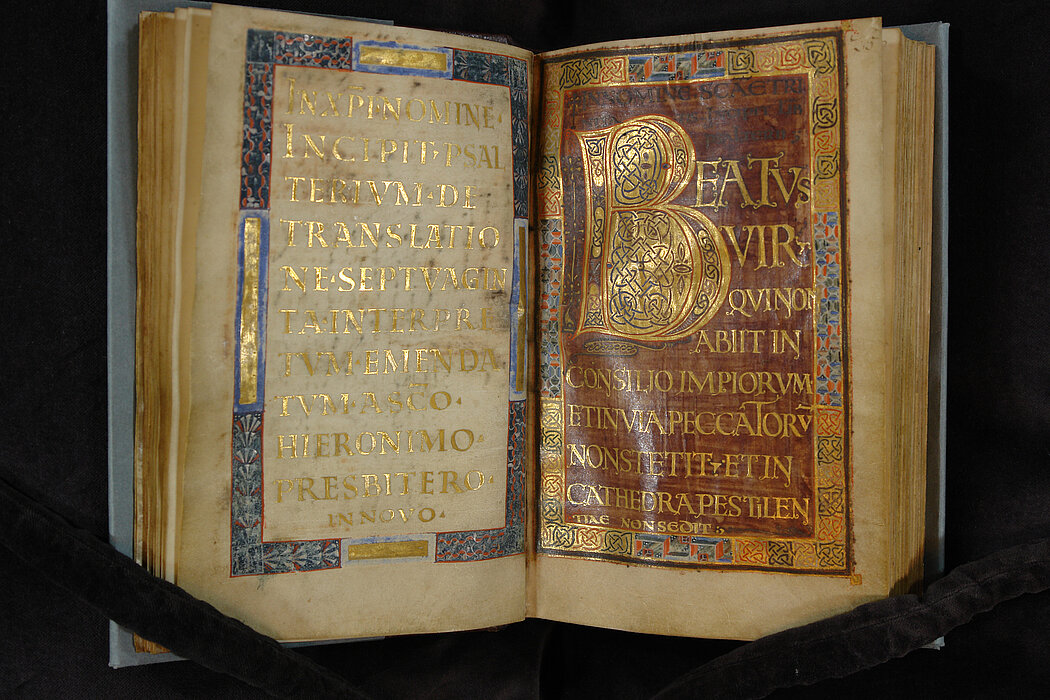 IN XPI NOMINE·
INCIPIT·PSAL
TERIVM·DE
TRANSLATIO
NE·SEPTVAGIN
TA·INTERPRE
TVM·EMENDA
TVM·A SCO·
HIERONIMO·
PRESBITERO·
IN NOVO·
NOMINE SCAE TRI
BEATUS
VIR·
QVI NON
ABIIT IN
CONSILIO IMPIORVM
ET IN VIA PECCATORV̄
NON STETIT· ET IN
CATHEDRA PESTILEN
TIAE NON SEDIT